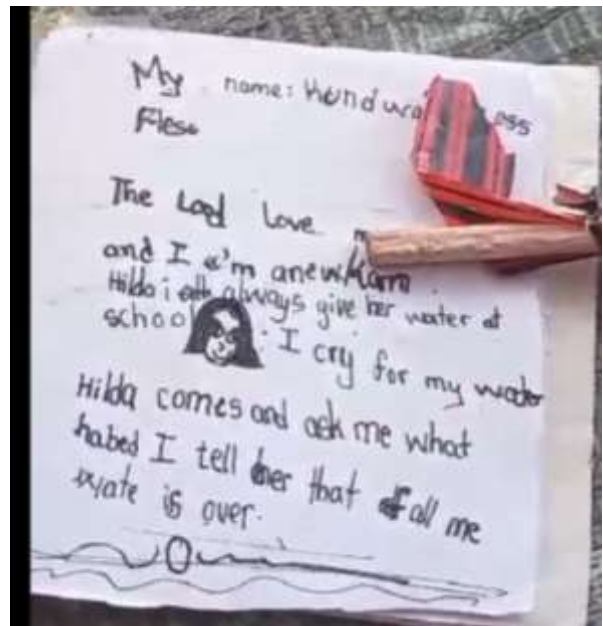 My name: Kundwa ess
Fless
The Lord love m
and I a'm a new
Hilda i always give her water at
school. I cry for my water
Hilda comes and ask me what
habed I tell her that all me
wate is over.